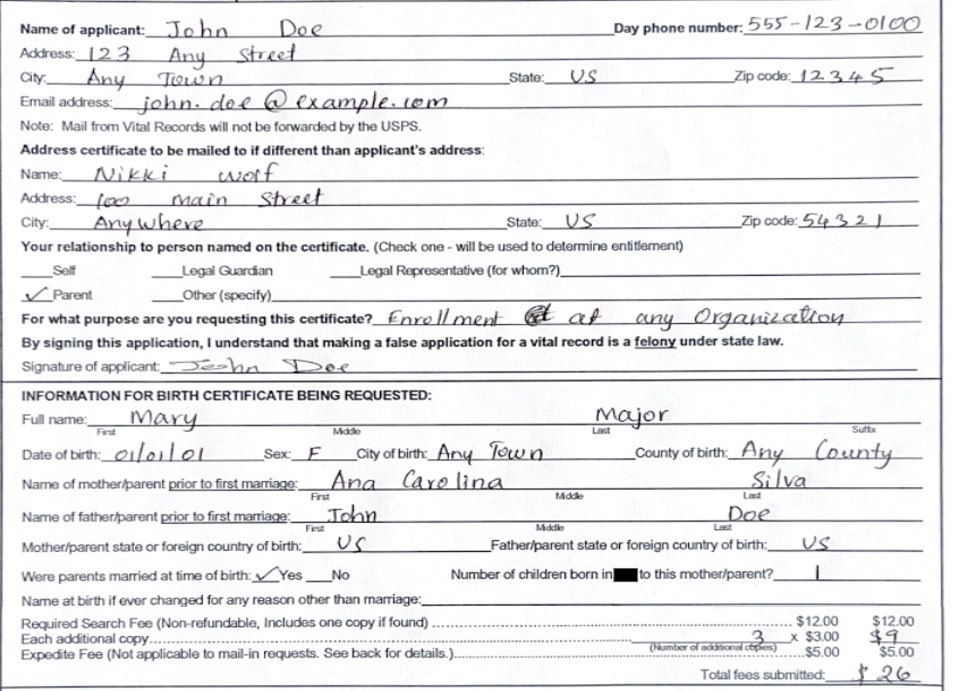 Name of applicant: John Doe Day phone number: 555-123-0100
Address: 123 Any Street
City: Any Town State: US Zip code: 12345
Email address: john.doe@example.com
Note: Mail from Vital Records will not be forwarded by the USPS.
Address certificate to be mailed to if different than applicant's address:
Name: Nikki Wolf
Address: 100 main Street
City: Anywhere State: US Zip code: 54321
Your relationship to person named on the certificate. (Check one - will be used to determine entitlement)
___Self ___Legal Guardian ___Legal Representative (for whom?)
✓ Parent ___Other (specify)
For what purpose are you requesting this certificate? Enrollment at any Organization
By signing this application, I understand that making a false application for a vital record is a felony under state law.
Signature of applicant: John Doe
INFORMATION FOR BIRTH CERTIFICATE BEING REQUESTED:
Full name: Mary Major
First Middle Last Suffix
Date of birth: 01/01/01 Sex: F City of birth: Any Town County of birth: Any County
Name of mother/parent prior to first marriage: Ana Carolina Silva
First Middle Last
Name of father/parent prior to first marriage: John Doe
First Middle Last
Mother/parent state or foreign country of birth: US Father/parent state or foreign country of birth: US
Were parents married at time of birth: ✓ Yes ___No Number of children born in to this mother/parent? 1
Name at birth if ever changed for any reason other than marriage:
Required Search Fee (Non-refundable, Includes one copy if found) $12.00 $12.00
Each additional copy 3 x $3.00 $9
(Number of additional copies)
Expedite Fee (Not applicable to mail-in requests. See back for details.) $5.00 $5.00
Total fees submitted: $26